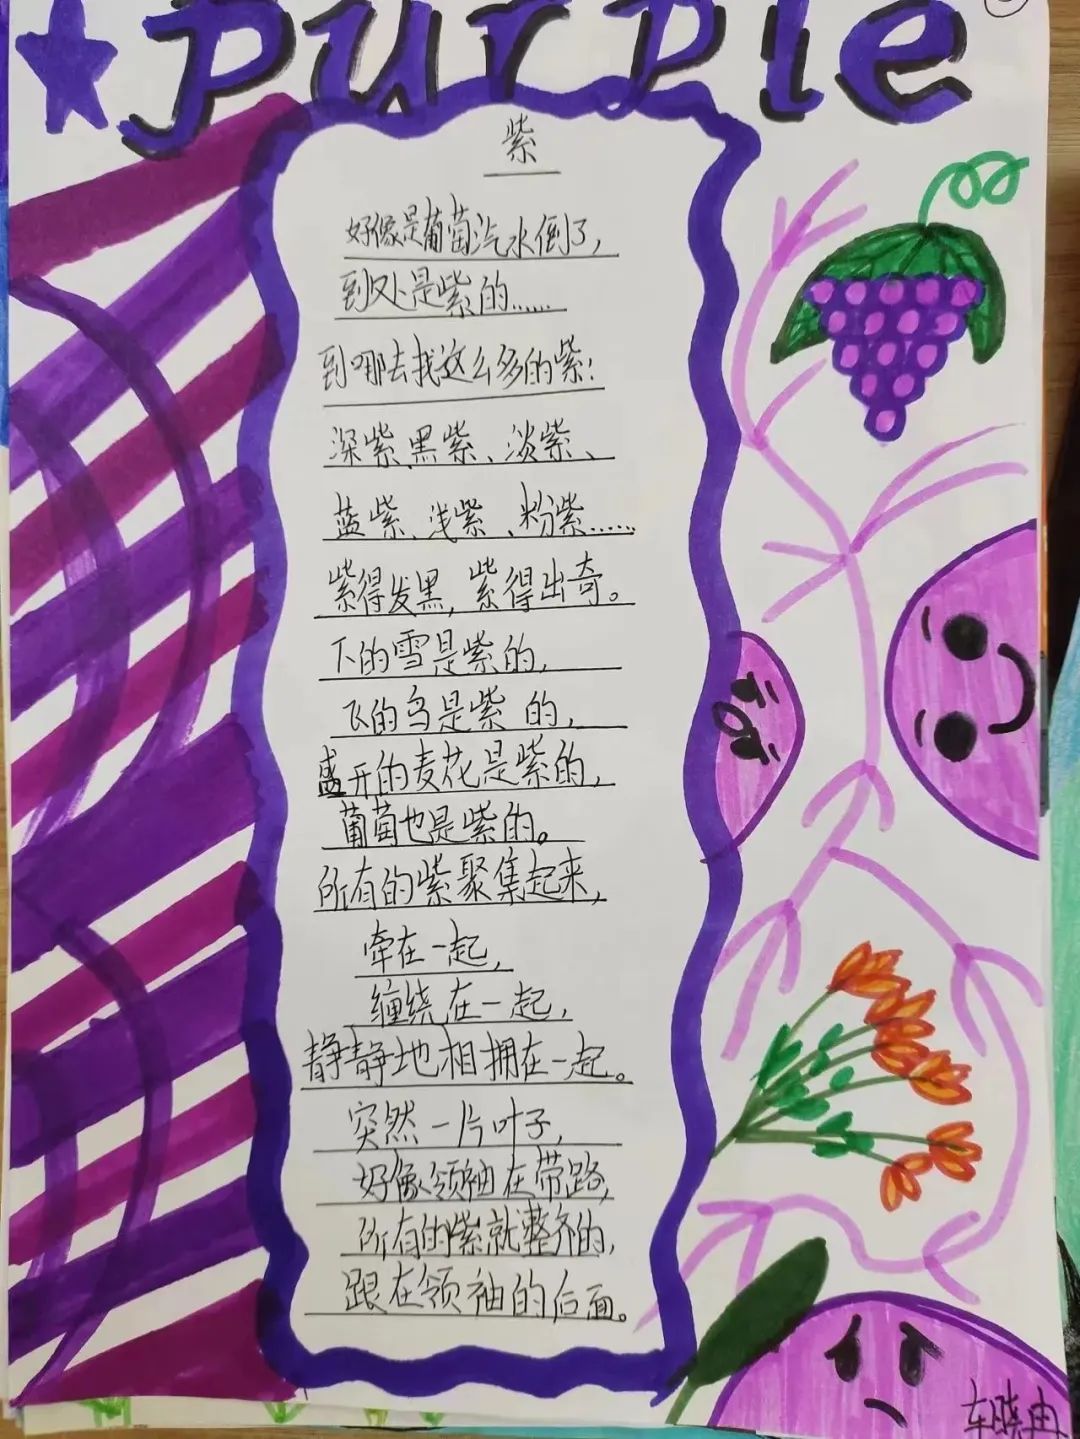 purple
紫
好像是葡萄汽水倒了，
到处是紫的……
到哪去找这么多的紫！
深紫、黑紫、淡紫、
蓝紫、浅紫、粉紫……
紫得发黑，紫得出奇。
下的雪是紫的，
飞的鸟是紫的，
盛开的麦花是紫的，
葡萄也是紫的。
所有的紫聚集起来，
牵在一起，
缠绕在一起，
静静地相拥在一起。
突然一片叶子，
好像领袖在带路，
所有的紫就整齐的，
跟在领袖的后面。
车晓冉